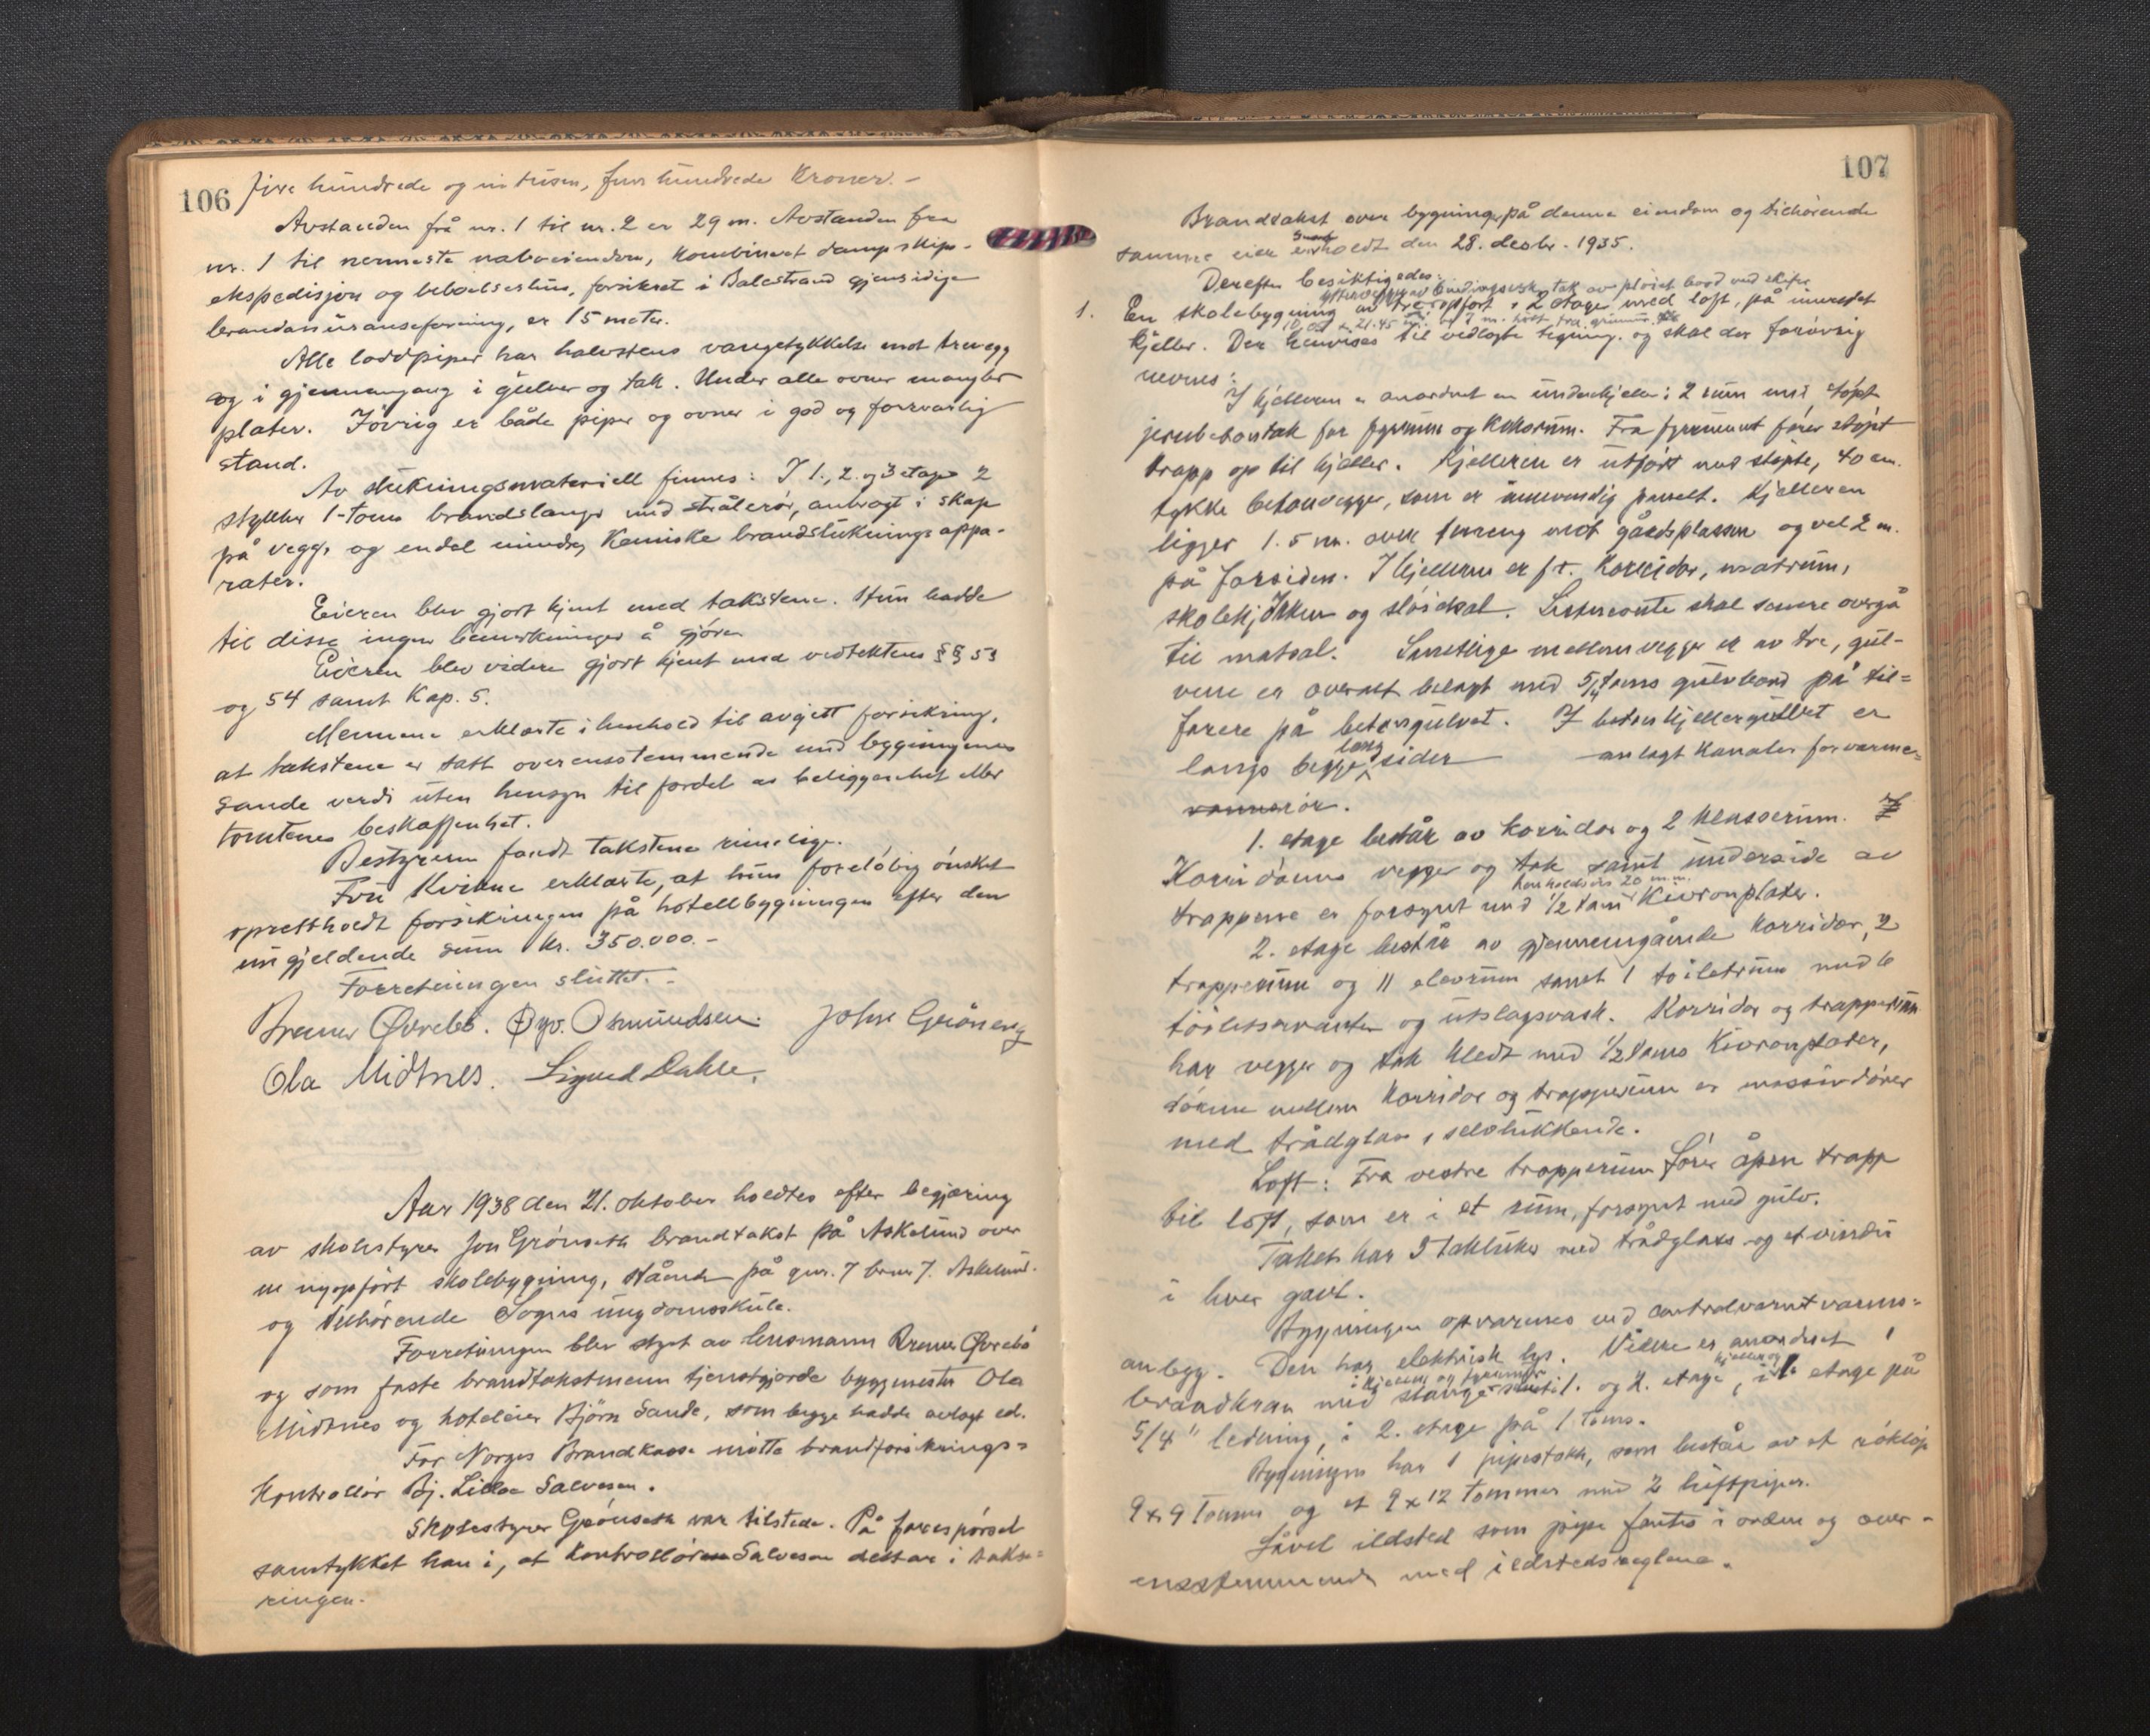 106
fire hundrede og en tusen, fem hundrede Kroner. -
Avstanden frå nr. 1 til nr. 2 er 29 m. Avstanden fra
nr. 1 til nermeste naboeiendom, kombinert dampskips-
ekspedisjon og beboelseshus, forsikret i Balestrand gjensidige
brandassuranseforening, er 15 meter.
Alle loddpiper har halvstens vangetykkelse mot trevegg
og i gjennemgang i gulver og tak. Under alle ovner mangler
plater. Iøvrig er både piper og ovner i god og forsvarlig
stand.
Av slukningsmateriell finnes: I 1., 2. og 3 etage 2
stykker 1-toms brandslanger med strålerør, anbragt i skap
på vegg, og endel mindre kemiske brandsluknings appa-
rater.
Eieren blev gjort kjent med takstene. Hun hadde
til disse ingen bemerkninger å gjøre.
Eieren blev videre gjort kjent med vedtektene §§ 53
og 54 samt Kap. 5.
Mennene erklærte i henhold til avgitt forsikring,
at takstene er satt overensstemmende med bygningenes
sande verdi uten hensyn til fordel av beliggenhet eller
tomtenes beskaffenhet.
Bestyreren fandt takstene rimelige.
Fru Kvikne erklærte, at hun foreløbig ønsket
oprettholdt forsikringen på hotellbygningen efter den
nugjeldende sum kr. 350.000.-
Forretningen sluttet. -
Bremer Øvrebö. Øyv. Osmundsen. Johs Grøneng
Ola Midtnes. Sigurd Dahle.
Aar 1938 den 21. oktober holdtes efter begjæring
av skolestyrer Jon Grønseth brandtakst på Askelund over
en nyopført skolebygning, stående på gnr. 7 bnr. 7. Askelund
og tilhørende Sogns ungdomsskule.
Forretningen blev styrt av lensmann Bremer Øvrebö
og som faste brandtakstmenn tjenstgjorde byggmester Ola
Midtnes og hoteleier Björn Sande, som begge hadde avlagt ed.
For Norges Brandkasse møtte brandforsikrings-
kontrollør Bj. Lilloe Salvesen.
Skolestyrer Grønseth var tilstede. På forespørsel
samtykket han i, at kontrollør Salvesen deltar i takse-
ringen.
107
Brandtakst over bygninger på denne eiendom og tilhørende
samme eier er holdt den 28. desbr. 1935.
Derefter besiktigedes:
yttervegger av bindingsverk, tak av pløiet bord med skifer
1. En skolebygning av tre opført i 2 etager med loft, på innredet
kjeller. Der henvises til vedlagte tegning. og skal der forøvrig
nevnes:
I kjelleren er anordnet en underkjeller: 2 rum med støpt
jernbetontak for fyrrum og koksrum. Fra fyrrummet fører støpt
trapp op til kjeller. Kjelleren er utført med støpte, 40 cm.
tykke betonvegger, som er innvendig panelt. Kjelleren
ligger 1.5 m. over terreng mot gårdsplassen og vel 2 m.
på forsiden. I kjelleren er f.t. korridor, matrum,
skolekjøkken og sløidsal. Sistnevnte skal senere overgå
til matsal. Samtlige mellemvegger er av tre, gul-
vene er overalt belagt med 5/4 toms gulvbord på til-
farere på betongulvet. I betonkjellergulvet er
langs begge lang sider anlagt kanaler for varme-
rør.
1. etage består av korridor og 2 klasserum.
Korridorens vegger og tak samt underside av
henholdsvis 20 m.m.
trappene er forsynt med 1/2 tom Kivronplater.
2. etage består av gjennemgående korridor, 2
trapperum og 11 elevrum samt 1 toiletrum med 6
toiletservanter og utslagsvask. Korridor og trapperum
har vegger og tak kledt med 1/2 toms Kivronplater,
dørene mellem korridor og trapperum er massivdører
med trådglas, selvlukkende.
Loft: Fra vestre trapperum fører åpen trapp
til loft, som er i et rum, forsynt med gulv.
Taket har 5 takluker med trådglass og et vindu
i hver gavl.
Bygningen opvarmes ved centralvarmtvanns-
anlegg. Den har elektrisk lys. Videre er anordnet 1
i kjelleren og fyrrum
kjeller og
brandkran med slange i 1. og 2. etage, i 1. etage på
5/4" ledning, i 2. etage på 1 toms.
Bygningen har 1 pipestokk, som består av et røkløp
9 x 9 Tommer og et 9 x 12 tommer med 2 luftpiper.
Såvel ildsted som pipe fantes i orden og over-
ensstemmende med ildstedsreglene.